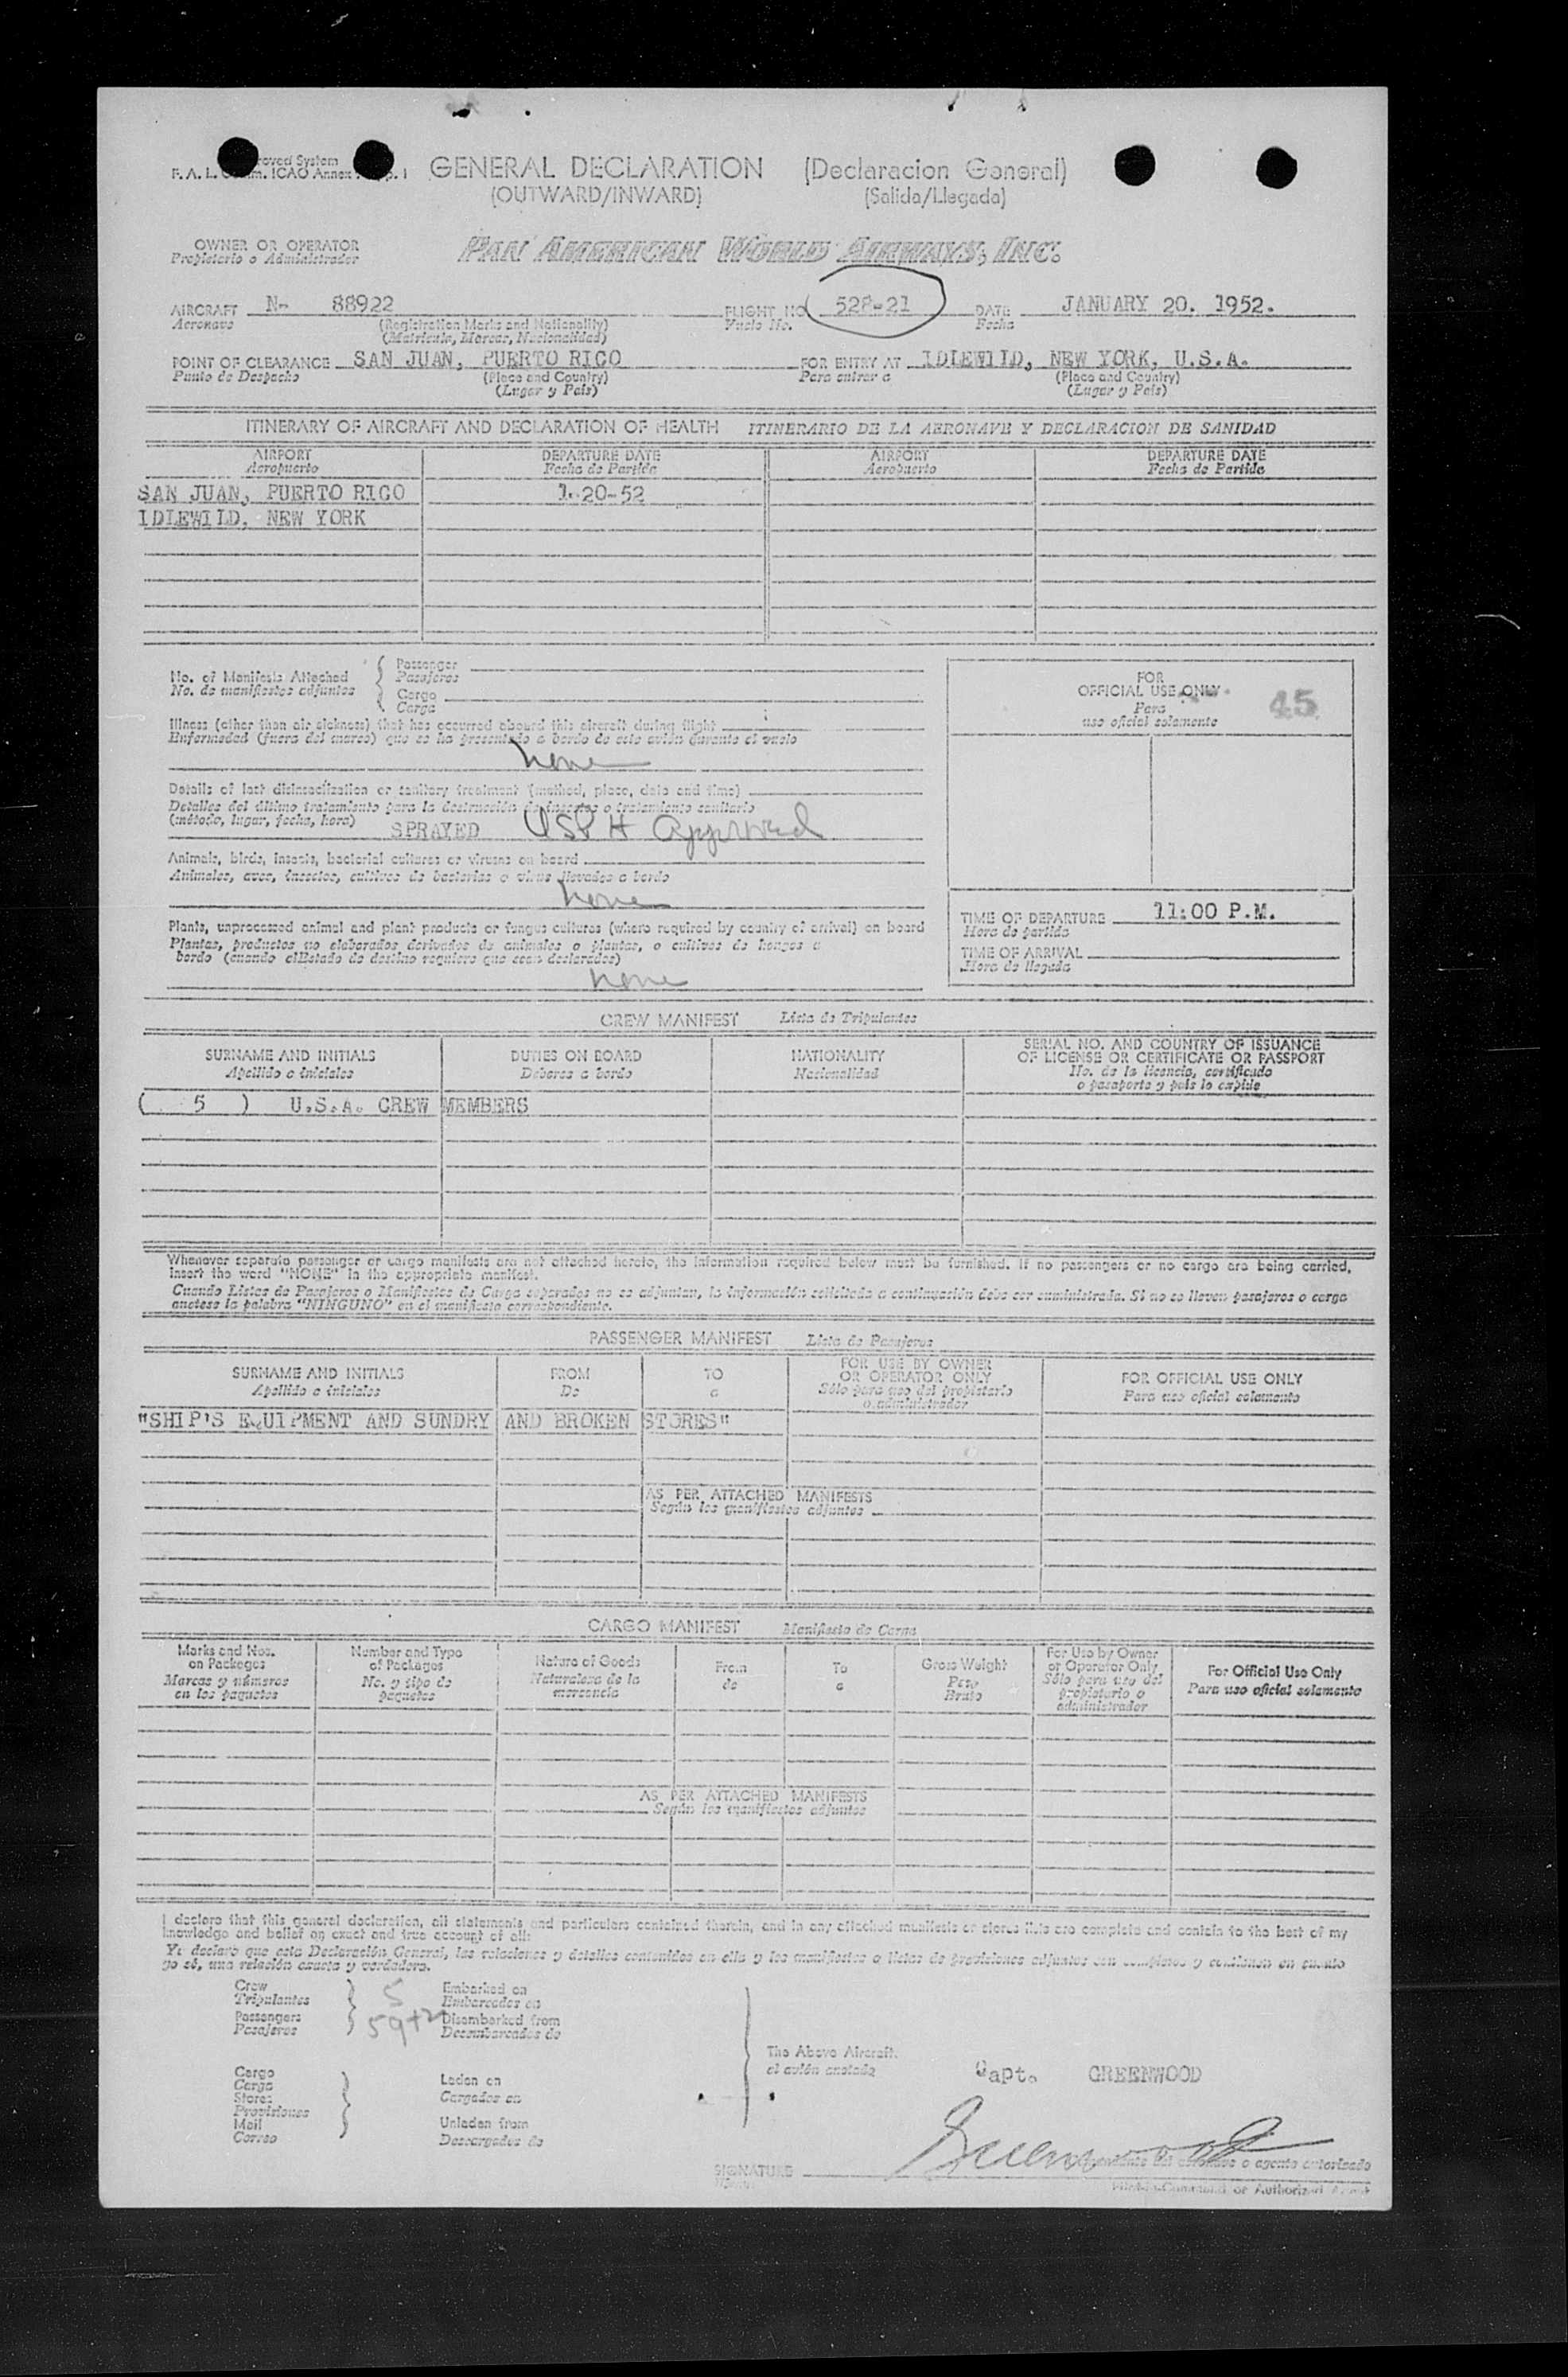 GENERAL DECLARATION (Declaracion General)
(OUTWARD/INWARD) (Salida/Llegada)
OWNER OR OPERATOR
Propietario o Administrador
PAN AMERICAN WORLD AIRWAYS, INC.
AIRCRAFT N- 88922 FLIGHT NO 528-21 DATE JANUARY 20. 1952.
Aeronave (Registration Marks and Nationality) Vuelo No. Fecha
(Matricula, Marcas, Nacionalidad)
POINT OF CLEARANCE SAN JUAN, PUERTO RICO FOR ENTRY AT IDLEWILD, NEW YORK, U.S.A.
Punto de Despacho (Place and Country) Para entrar a (Place and Country)
(Lugar y País) (Lugar y País)
ITINERARY OF AIRCRAFT AND DECLARATION OF HEALTH ITINERARIO DE LA AERONAVE Y DECLARACION DE SANIDAD
AIRPORT DEPARTURE DATE AIRPORT DEPARTURE DATE
Aeropuerto Fecha de Partida Aeropuerto Fecha de Partida
SAN JUAN, PUERTO RICO 1-20-52
IDLEWILD, NEW YORK
No. of Manifests Attached
No. de manifiestos adjuntos
Passenger
Pasajeros
Cargo
Carga
FOR
OFFICIAL USE ONLY
Para
uso oficial solamente
45
Illness (other than air sickness) that has occurred aboard this aircraft during flight
Enfermedad (fuera del mareo) que se ha presentado a bordo de este avión durante el vuelo
none
Details of last disinsectization or sanitary treatment (method, place, date and time)
Detalles del último tratamiento para la destrucción de insectos o tratamiento sanitario
(método, lugar, fecha, hora) SPRAYED USPH Approved
Animals, birds, insects, bacterial cultures or viruses on board
Animales, aves, insectos, cultivos de bacterias o virus llevados a bordo
none
Plants, unprocessed animal and plant products or fungus cultures (where required by country of arrival) on board
Plantas, productos no elaborados derivados de animales o plantas, o cultivos de hongos a
bordo (cuando el Estado de destino requiere que sean declarados)
none
TIME OF DEPARTURE 11:00 P.M.
Hora de partida
TIME OF ARRIVAL
Hora de llegada
CREW MANIFEST Lista de Tripulantes
SURNAME AND INITIALS DUTIES ON BOARD NATIONALITY SERIAL NO. AND COUNTRY OF ISSUANCE
OF LICENSE OR CERTIFICATE OR PASSPORT
Apellido e iniciales Deberes a bordo Nacionalidad No. de la licencia, certificado
o pasaporte y país lo expide
( 5 ) U.S.A. CREW MEMBERS
Whenever separate passenger or cargo manifests are not attached hereto, the information required below must be furnished. If no passengers or no cargo are being carried,
insert the word "NONE" in the appropriate manifest.
Cuando Listas de Pasajeros o Manifiestos de Carga separados no se adjuntan, la información solicitada a continuación debe ser suministrada. Si no se llevan pasajeros o carga
anotese la palabra "NINGUNO" en el manifiesto correspondiente.
PASSENGER MANIFEST Lista de Pasajeros
SURNAME AND INITIALS FROM TO FOR USE BY OWNER
OR OPERATOR ONLY FOR OFFICIAL USE ONLY
Apellido e iniciales De a Sólo para uso del propietario
o administrador Para uso oficial solamente
"SHIP'S EQUIPMENT AND SUNDRY AND BROKEN STORES"
AS PER ATTACHED MANIFESTS
Según los manifiestos adjuntos
CARGO MANIFEST Manifiesto de Carga
Marks and Nos.
on Packages
Marcas y números
en los paquetes
Number and Type
of Packages
No. y tipo de
paquetes
Nature of Goods
Naturaleza de la
mercancía
From
de
To
a
Gross Weight
Peso
Bruto
For Use by Owner
or Operator Only
Sólo para uso del
propietario o
administrador
For Official Use Only
Para uso oficial solamente
AS PER ATTACHED MANIFESTS
Según los manifiestos adjuntos
I declare that this general declaration, all statements and particulars contained therein, and in any attached manifests or stores lists are complete and contain to the best of my
knowledge and belief an exact and true account of all:
Yo declaro que esta Declaración General, las relaciones y detalles contenidos en ella y los manifiestos o listas de provisiones adjuntos son completos y contienen en cuanto
yo sé, una relación exacta y verdadera.
Crew 5 Embarked on
Tripulantes Embarcados en
Passengers 59+2 Disembarked from
Pasajeros Desembarcados de
The Above Aircraft.
el avión anotado
Capt. GREENWOOD
Cargo
Carga
Stores
Provisiones
Mail
Correo
Laden on
Cargados en
Unladen from
Descargados de
Greenwood
SIGNATURE
o agente autorizado
or Authorized Agent